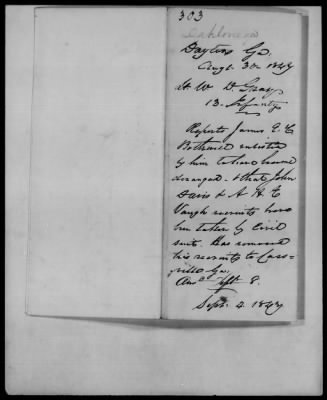 303
Dahlonega
Dayton Ga.
Augt 30th 1847
Lt W D Gray
13. Infantry
Reports James E. C
Bothwell enlisted
by him to have become
deranged. & that John
Davis & A H C
Vaugh recruits have
been taken by Civil
suit. Has removed
his recruits to Cass-
ville Ga.
Ansd Sept 8.
Sept. 4. 1847